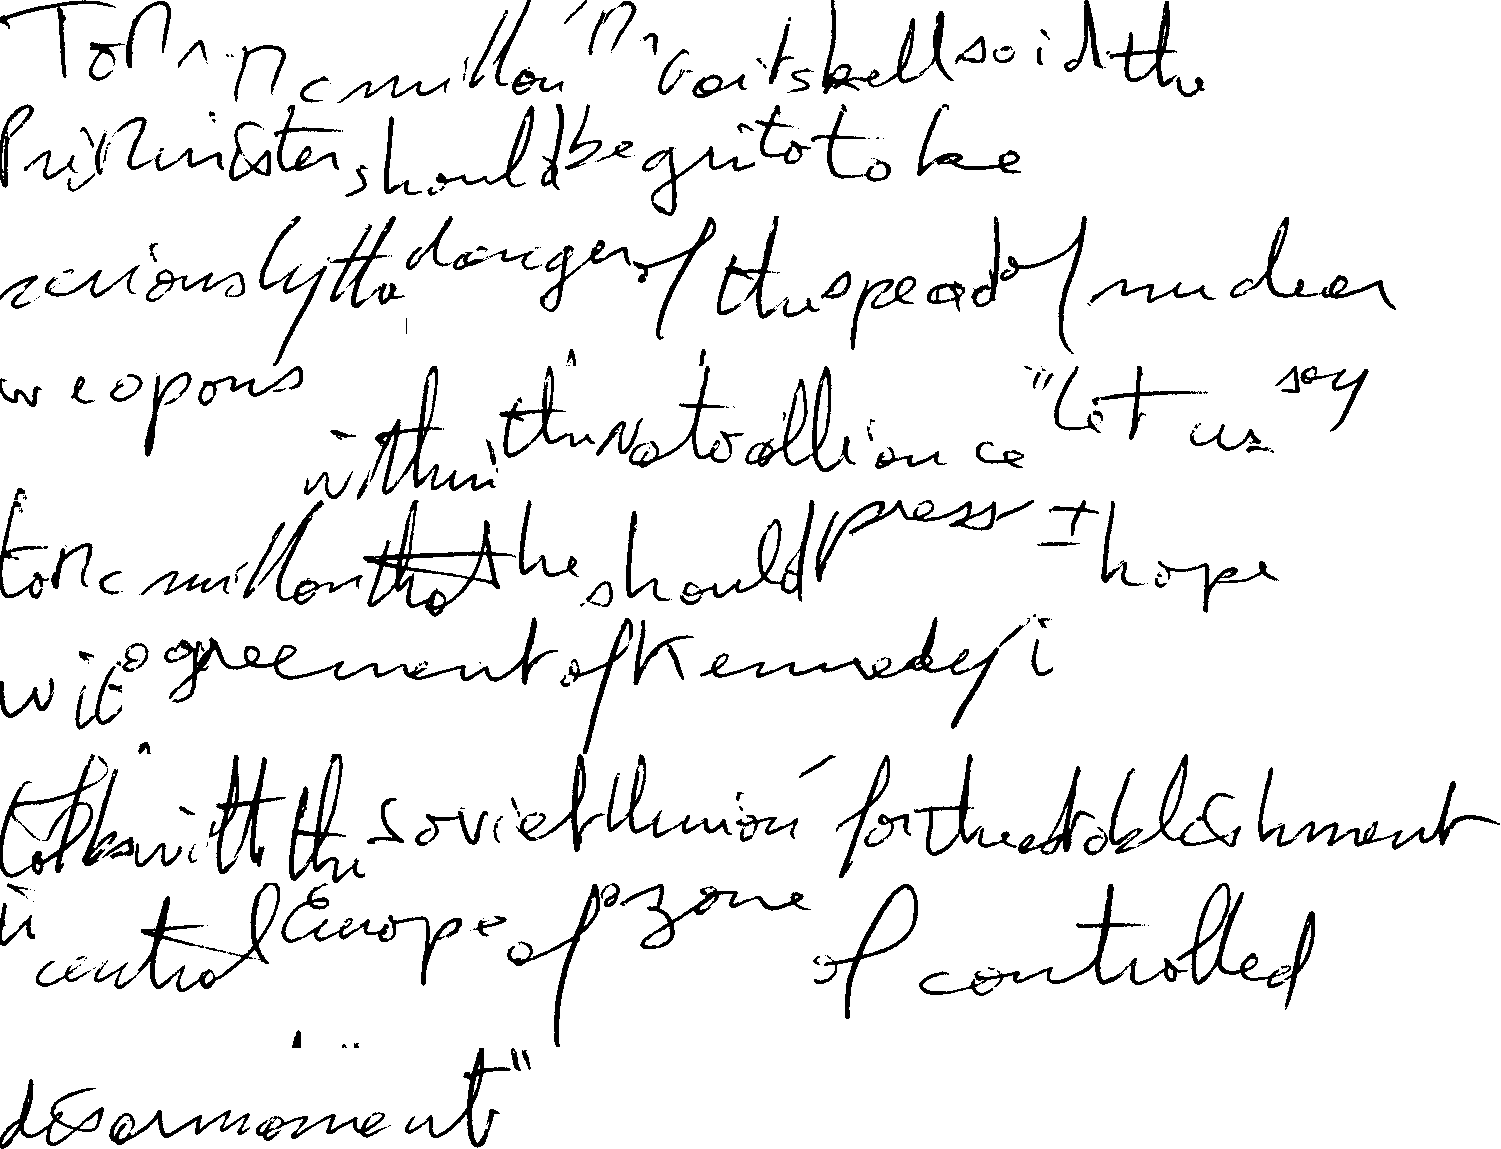 To Mr. Mcmillan Mr Gaitskell said the
Prime Minister should begin to take
seriously the danger of the spread of nuclear
weapons within the Nato alliance "Let us say
to Mcmillan that he should press I hope
with agreement of Kennedy, in
talks with the Soviet Union for the establishment
in central Europe of a zone of controlled
disarmament"